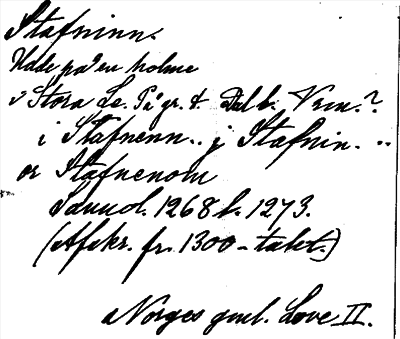 Stafninn.
Udde på en holme
i Stora Le. På gr. t. Dalb. Vrm.?
i Stafnenn.. j Stafnin. ..
or Stafnenom
Samml. 1268 l. 1273.
(Afskr. fr. 1300-talet.)
Norges gml. Love II.